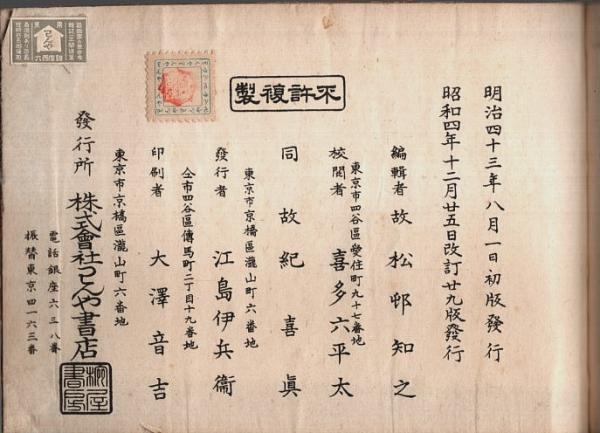 明治四十三年八月一日初版發行
昭和四年十二月廿五日改訂廿九版發行
不許複製
編輯者 故 松邨知之
東京市四谷區愛住町九十七番地
校閲者 喜多六平太
同 故 紀喜眞
東京市京橋區瀧山町六番地
發行者 江島伊兵衞
仝市四谷區傳馬町二丁目十九番地
印刷者 大澤音吉
東京市京橋區瀧山町六番地
發行所 株式會社わんや書店
電話銀座六三八番
振替東京四一六三番